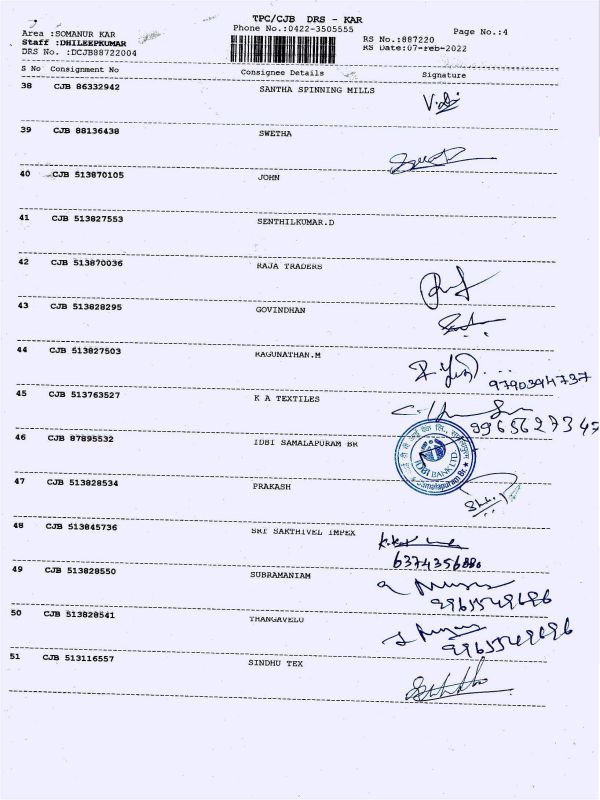 TPC/CJB DRS - KAR
Area :SOMANUR KAR
Phone No.:0422-3505555
Page No.:4
Staff :DHILEEPKUMAR
RS No.:887220
DRS No. :DCJB88722004
RS Date:07-Feb-2022
S No Consignment No Consignee Details Signature
38 CJB 86332942 SANTHA SPINNING MILLS
39 CJB 88136438 SWETHA
40 CJB 513870105 JOHN
41 CJB 513827553 SENTHILKUMAR.D
42 CJB 513870036 RAJA TRADERS
43 CJB 513828295 GOVINDHAN
44 CJB 513827503 RAGUNATHAN.M
9790394737
45 CJB 513763527 K A TEXTILES
9965627345
46 CJB 87895532 IDBI SAMALAPURAM BR
IDBI BANK LTD.
Samalapuram Br.
47 CJB 513828534 PRAKASH
48 CJB 513845736 SRI SAKTHIVEL IMPEX
6374356880
49 CJB 513828550 SUBRAMANIAM
9965549696
50 CJB 513828541 THANGAVELU
9965549696
51 CJB 513116557 SINDHU TEX